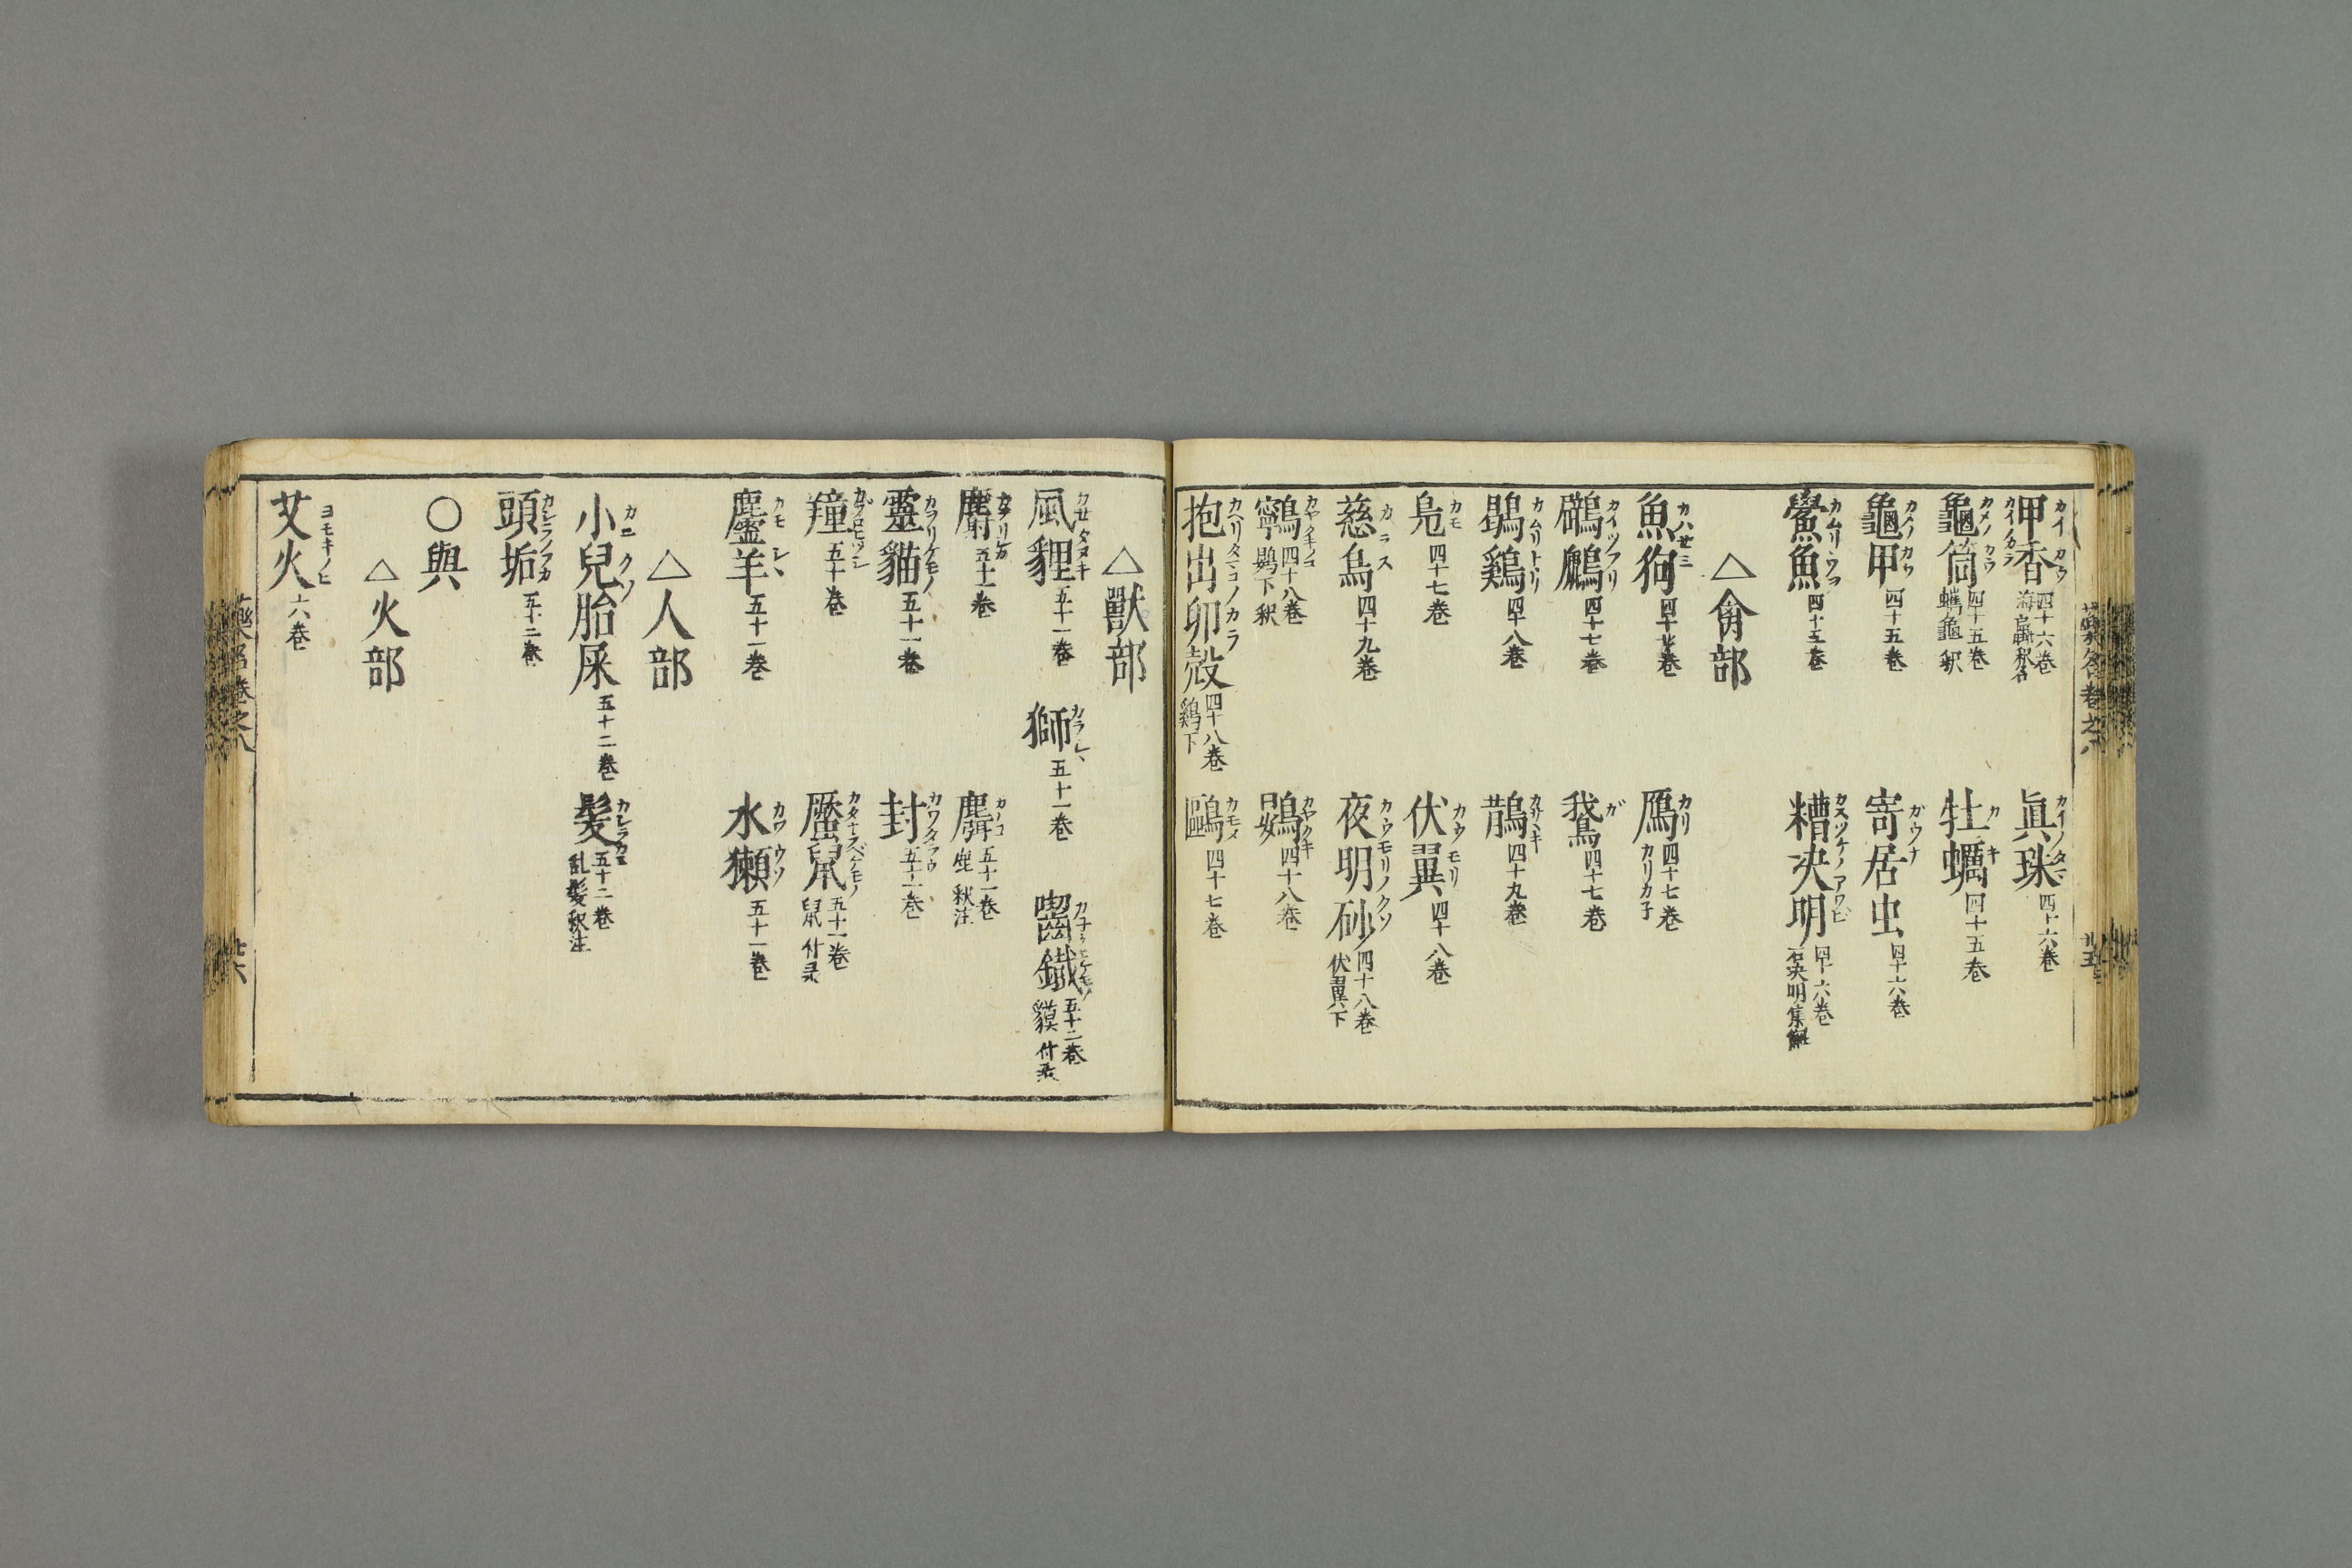 甲香 カイカウ カイノカラ 四十六巻 海蠃釈名
眞珠 カイノタマ 四十六巻
龜筒 カメノカウ 四十五巻 蠵龜釈
牡蠣 カキ 四十五巻
龜甲 カメノカウ 四十五巻
寄居虫 ガウナ 四十六巻
鱟魚 カムリウヲ 四十五巻
糟决明 カスヅケノアワビ 四十六巻 石决明集解
△禽部
魚狗 カハセミ 四十七巻
鴈 カリ 四十七巻 カリカ子
鸊鷉 カイツフリ 四十七巻
鵞 ガ 四十七巻
鶡鷄 カムリトリ 四十八巻
鵲 カサヽキ 四十九巻
鳬 カモ 四十七巻
伏翼 カウモリ 四十八巻
慈烏 カラス 四十九巻
夜明砂 カウモリノクソ 四十八巻 伏翼下
四十八巻 下釈
カヤクキ 四十八巻
抱出卯殻 カヘリタマコノカラ 四十八巻 鷄下
鷗 カモメ 四十七巻
△獸部
風貍 カセタヌキ 五十一巻
獅 カラシヽ 五十一巻
齧鐵 五十二巻 貘付录
麝 五十一巻
五十一巻 鹿釈注
靈貓 カヲリケモノ 五十一巻
封 五十一巻
羵 五十巻
五十一巻 鼠付录
麢羊 カモシヽ 五十一巻
水獺 カワウソ 五十一巻
△人部
小兒胎屎 カニクソ 五十二巻
髪 カシラカミ 五十二巻 乱髪釈注
頭垢 カシラノアカ 五十二巻
○與
△火部
艾火 ヨモキノヒ 六巻
藥名巻之八
廿五
藥名巻之八
廿六